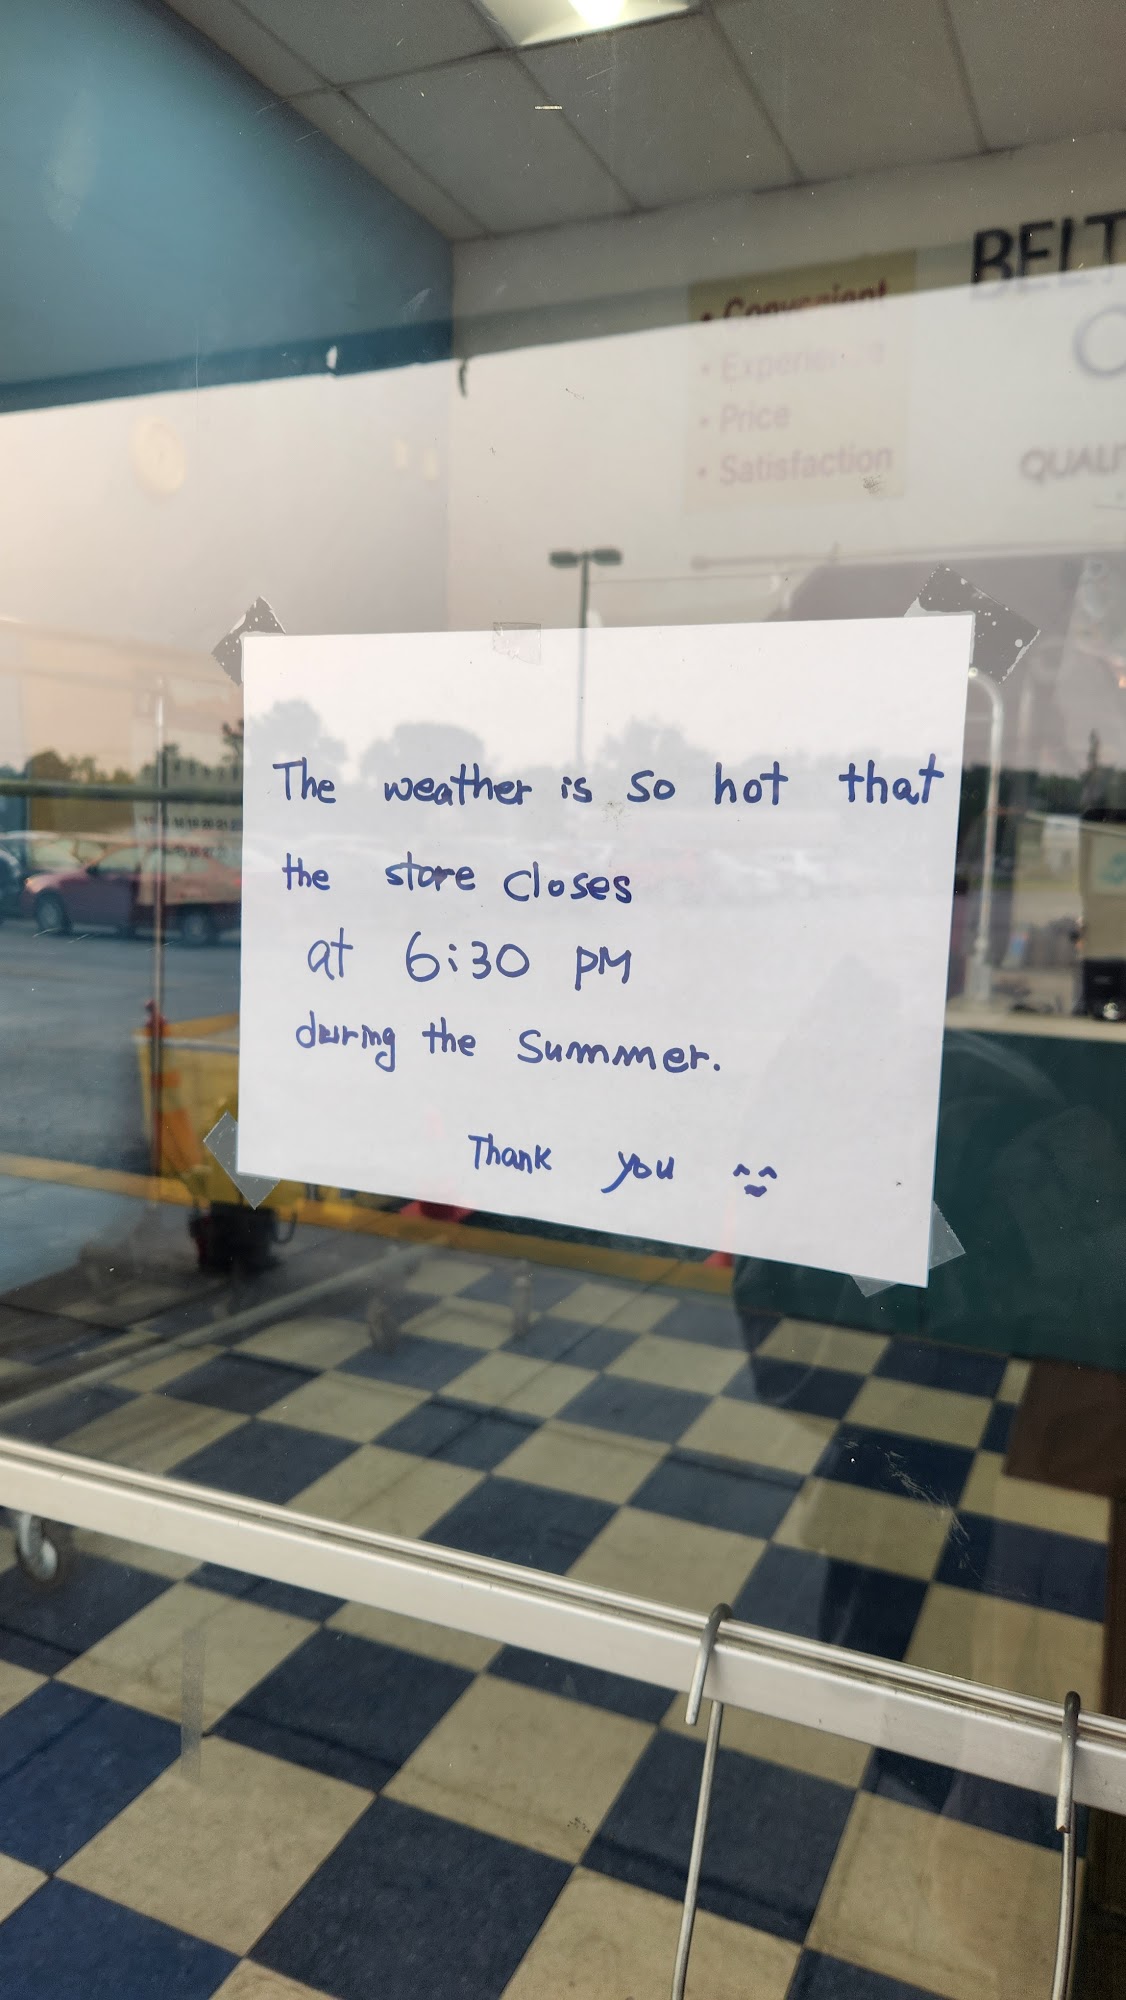 BELT
• Convenient
• Experience
• Price
• Satisfaction
QUALI
The weather is so hot that
the store closes
at 6:30 PM
during the Summer.
Thank you ^^